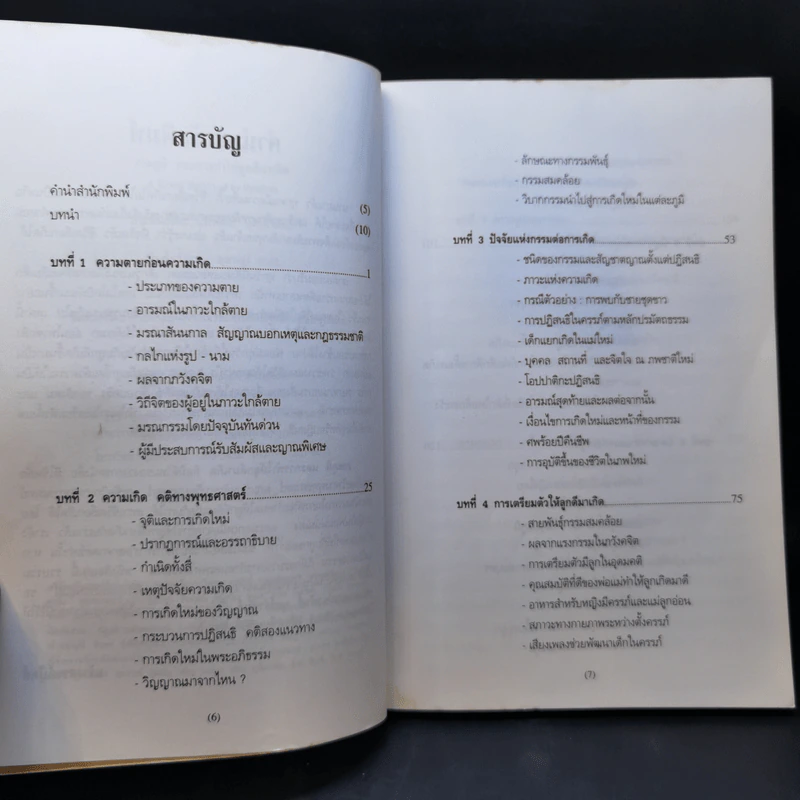 สารบัญ
คำนำสำนักพิมพ์ (5)
บทนำ (10)
บทที่ 1 ความตายก่อนความเกิด 1
- ประเภทของความตาย
- อารมณ์ในภาวะใกล้ตาย
- มรณาสันนกาล สัญญาณบอกเหตุและกฎธรรมชาติ
- กลไกแห่งรูป - นาม
- ผลจากภวังคจิต
- วิถีจิตของผู้อยู่ในภาวะใกล้ตาย
- มรณกรรมโดยปัจจุบันทันด่วน
- ผู้มีประสบการณ์รับสัมผัสและญาณพิเศษ
บทที่ 2 ความเกิด คติทางพุทธศาสตร์ 25
- จุติและการเกิดใหม่
- ปรากฏการณ์และอรรถาธิบาย
- กำเนิดทั้งสี่
- เหตุปัจจัยความเกิด
- การเกิดใหม่ของวิญญาณ
- กระบวนการปฏิสนธิ คติสองแนวทาง
- การเกิดใหม่ในพระอภิธรรม
- วิญญาณมาจากไหน ?
(6)
- ลักษณะทางกรรมพันธุ์
- กรรมสมคล้อย
- วิบากกรรมนำไปสู่การเกิดใหม่ในแต่ละภูมิ
บทที่ 3 ปัจจัยแห่งกรรมต่อการเกิด 53
- ชนิดของกรรมและสัญชาตญาณตั้งแต่ปฏิสนธิ
- ภาวะแห่งความเกิด
- กรณีตัวอย่าง : การพบกับชายชุดขาว
- การปฏิสนธิในครรภ์ตามหลักปรมัตถธรรม
- เด็กแขกเกิดในแม่ใหม่
- บุคคล สถานที่ และจิตใจ ณ ภพชาติใหม่
- โอปปาติกะปฏิสนธิ
- อารมณ์สุดท้ายและผลต่อจากนั้น
- เงื่อนไขการเกิดใหม่และหน้าที่ของกรรม
- ศพร้อยปีคืนชีพ
- การอุบัติขึ้นของชีวิตในภพใหม่
บทที่ 4 การเตรียมตัวให้ลูกดีมาเกิด 75
- สายพันธุ์กรรมสมคล้อย
- ผลจากแรงกรรมในภวังคจิต
- การเตรียมตัวมีลูกในอุดมคติ
- คุณสมบัติที่ดีของพ่อแม่ทำให้ลูกเกิดมาดี
- อาหารสำหรับหญิงมีครรภ์และแม่ลูกอ่อน
- สภาวะทางกายภาพระหว่างตั้งครรภ์
- เสียงเพลงช่วยพัฒนาเด็กในครรภ์
(7)